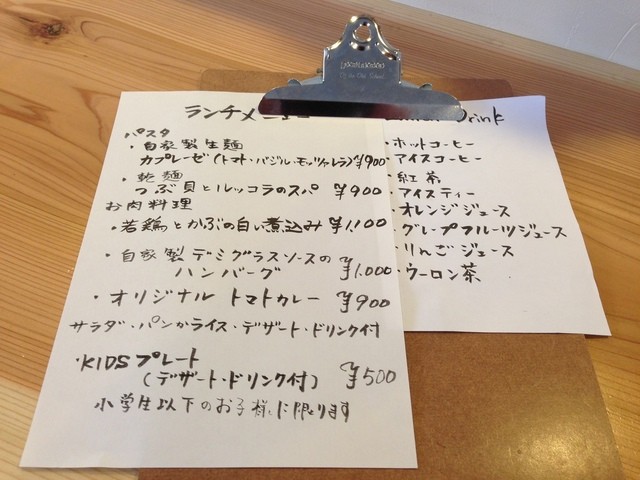 ランチメニュー
パスタ
・自家製生麺
カプレーゼ(トマト・バジル・モッツァレラ)¥900
・乾麺
つぶ貝とルッコラのスパ ¥900
お肉料理
・若鶏とかぶの白い煮込み ¥1,100
・自家製デミグラスソースの
ハンバーグ ¥1,000
・オリジナルトマトカレー ¥900
サラダ・パンかライス・デザート・ドリンク付
・KIDSプレート
(デザート・ドリンク付) ¥500
小学生以下のお子様に限ります
Drink
・ホットコーヒー
・アイスコーヒー
・紅茶
・アイスティー
・オレンジジュース
・グレープフルーツジュース
・りんごジュース
・ウーロン茶